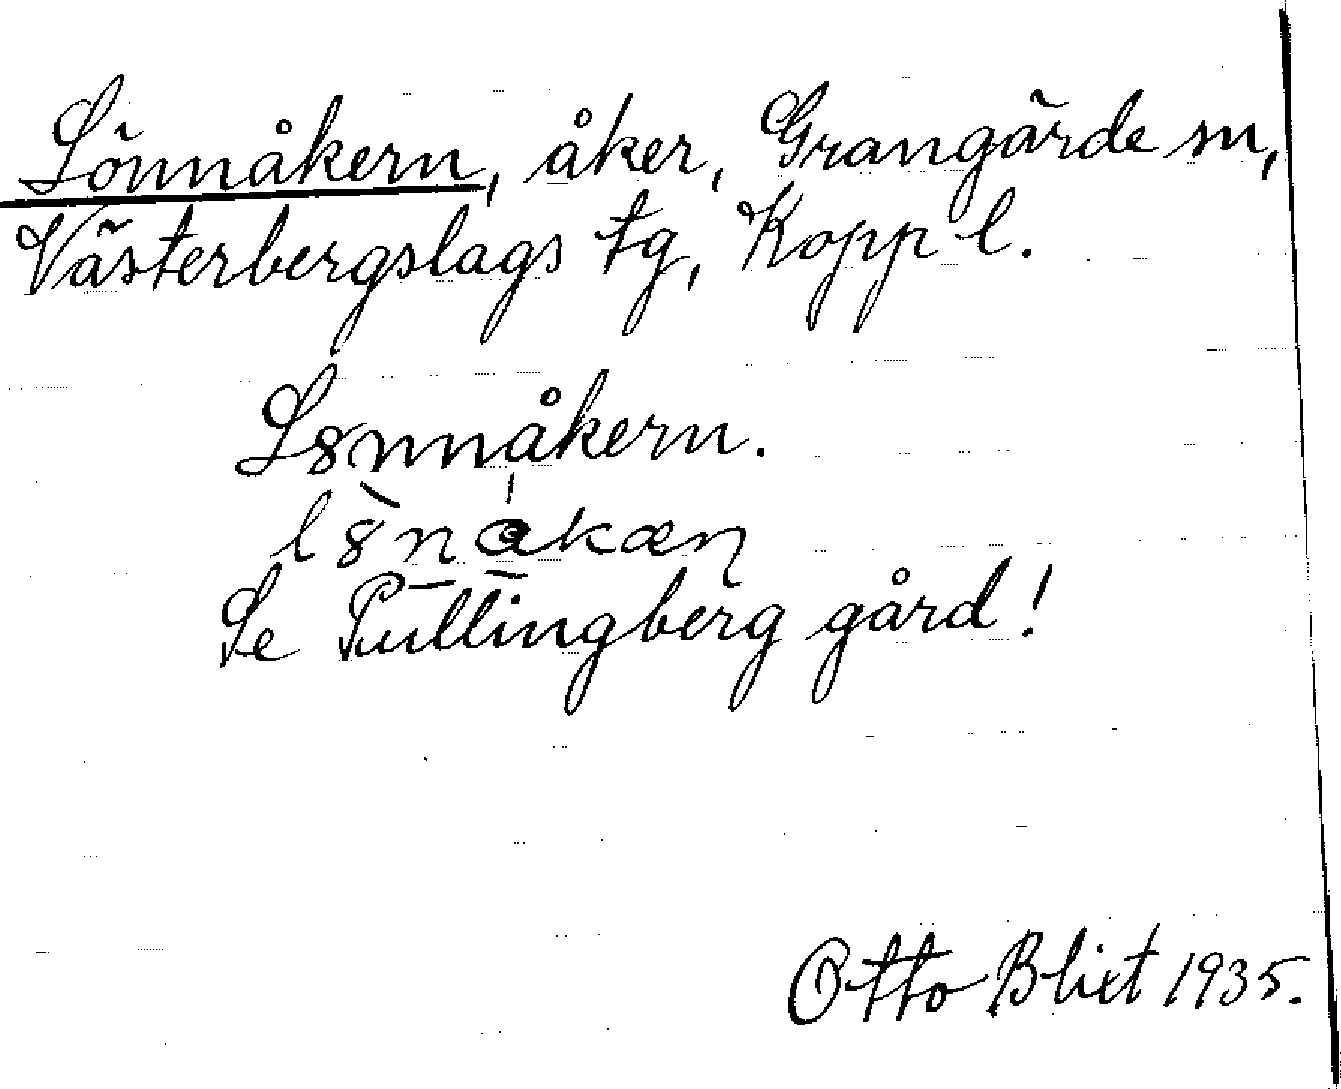 Lönnåkern, åker, Grangärde sn,
Västerbergslags tg, Kopp l.
L8nnåkern.
Se Pullingberg gård!
Otto Blixt 1935.